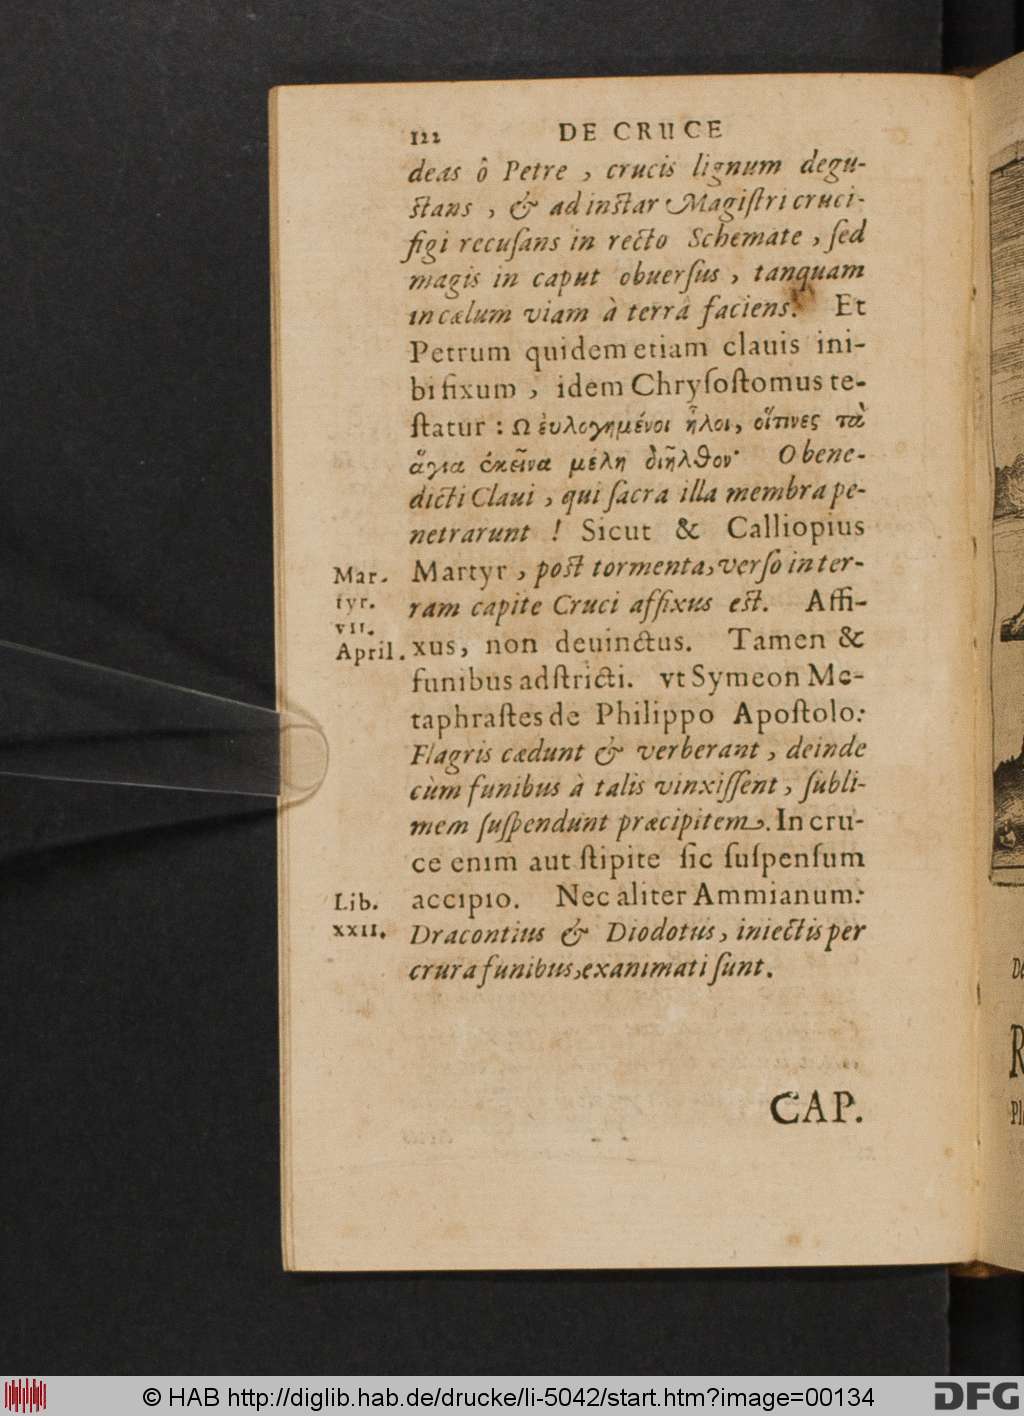 122 DE CRUCE
deas ô Petre, crucis lignum degu-
stans, & ad instar Magiſtri cruci-
figi recuſans in recto Schemate, ſed
magis in caput obuerſus, tanquam
in cælum viam à terrâ faciens. Et
Petrum quidem etiam clauis ini-
bi fixum, idem Chryſoſtomus te-
ſtatur: Ω ἐυλογημένοι ἧλοι, οἵτινες τὰ
ἅγια ἐκεῖνα μέλη διῆλθον· O bene-
dicti Claui, qui ſacra illa membra pe-
netrarunt! Sicut & Calliopius
Mar- Martyr, post tormenta, verſo in ter-
tyr. ram capite Cruci affixus est. Affi-
VII.
April. xus, non deuinctus. Tamen &
funibus adſtricti. vt Symeon Me-
taphraſtes de Philippo Apoſtolo:
Flagris cædunt & verberant, deinde
cùm funibus à talis vinxiſſent, ſubli-
mem ſuſpendunt præcipitem. In cru-
ce enim aut ſtipite ſic ſuſpenſum
Lib. accipio. Nec aliter Ammianum:
XXII. Dracontius & Diodotus, iniectis per
crura funibus, exanimati ſunt.
CAP.
© HAB http://diglib.hab.de/drucke/li-5042/start.htm?image=00134
DFG